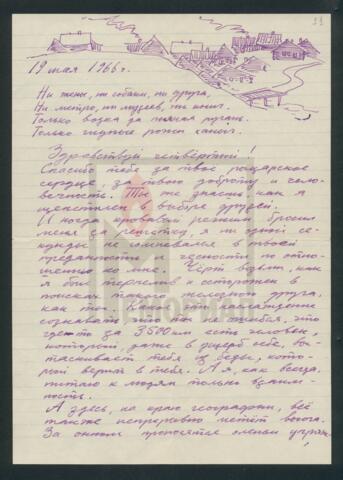 19 мая 1966 г.
Ни жены, ни собаки, ни друга,
Ни метро, ни музеев, ни книг.
Только водка да пьяная ругань.
Только гнусные рожи
Здравствуй четвертной!
Спасибо тебе за твое рыцарское
сердце, за твою доброту и чело-
вечность. Ты же знаешь, как я
щепетилен в выборе друзей.
И когда кровавый режим бросил
меня за решетку, я ни одной се-
кунды не сомневался в твоей
преданности и честности по отно-
шению ко мне. Черт возьми, как
я был терпелив и осторожен в
поисках такого железного друга,
как ты. Какое это наслаждение
сознавать, что не ошибся, что
где-то за 3500 км есть человек,
который, даже в ущерб себе, вы-
таскивает тебя из беды, кото-
рый верит в тебя. А я, как всегда,
питаю к людям только взаим-
ность.
А здесь, на краю географии, всё
также непрерывно метёт вьюга.
За окном проносятся оленьи упряж-